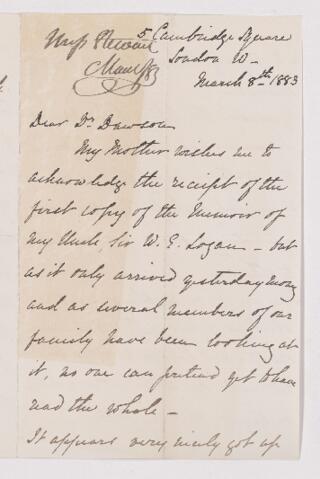 Miss Stewart
Mar 8/83
5 Cambridge Square
London W–
March 8th 1883
Dear Dr Dawson
My Mother wishes me to
acknowledge the receipt of the
first copy of the Memoir of
my Uncle Sir W. E. Logan – but
as it only arrived yesterday morg
and as several members of our
family have been looking at
it, no one can pretend yet to have
read the whole –
It appears very nicely got up